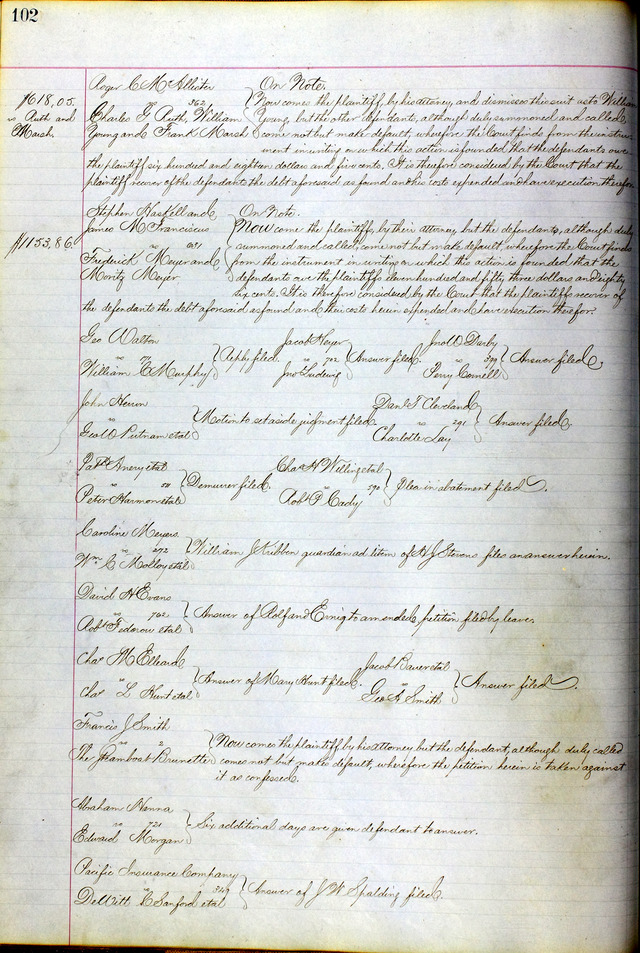 102
Roger C McAllister On Note.
$618,05. vs Ruth and Marsh
562 Now comes the plaintiff, by his attorney, and dismisses this suit as to William
Charles F Ruth, William Young, but the other defendants, although duly summoned and called,
Young and Frank Marsh come not but make default, wherefore the Court finds from the instru-
ment in writing on which this action is founded that the defendants owe
the plaintiff six hundred and eighteen dollars and five cents. It is therefore considered by the Court that the
plaintiff recover of the defendants the debt aforesaid as found and his costs expended and have execution therefor.
Stephen Haskell and On Note.
James M Franciscus Now come the plaintiffs, by their attorney but the defendants, although duly
$1153,86 vs summoned and called come not but make default, wherefore the Court finds
Frederick Meyer and from the instrument in writing on which the action is founded that the
Moritz Meyer defendants owe the plaintiffs eleven hundred and fifty three dollars and eighty
six cents. It is therefore considered by the Court that the plaintiffs recover of
the defendants the debt aforesaid as found and their costs herein expended and have execution therefor.
Geo Walton Jacob Jno O Derby
vs Reply filed. vs 702 Answer filed. vs 599 Answer filed.
William C Murphy Jno Ludwig Perry Cornell
John Heron Danl T Cleveland
vs Motion to set aside judgment filed. vs 291 Answer filed.
Geo O Putnam etal Charlotte Lay
etal Chas H Welling etal
vs 58 Demurrer filed. vs 590 Plea in abatement filed.
Peter Harmon etals Robt P Cady
Caroline Meyers
vs 272 William J Kribben guardian ad litem of H J Stevens files an answer herein.
Wm C Molloy etal
David H Evans
vs 762 Answer of Rolf and Ernig to amended petition filed by leave.
Robt etal
Chas M Elleard Jacob Bauer etal
vs Answer of Mary Hunt filed. vs Answer filed.
Chas L Hunt etal Geo A Smith
Francis J Smith
vs 2 Now comes the plaintiff by his attorney but the defendant, although duly called
The Brunette comes not but makes default, wherefore the petition herein is taken against
it as confessed.
Abraham Nanna
vs 721 Six additional days are given defendant to answer.
Edward Morgan
Pacific Insurance Company
vs 549 Answer of J W Spalding filed.
DeWitt C Sanford etal